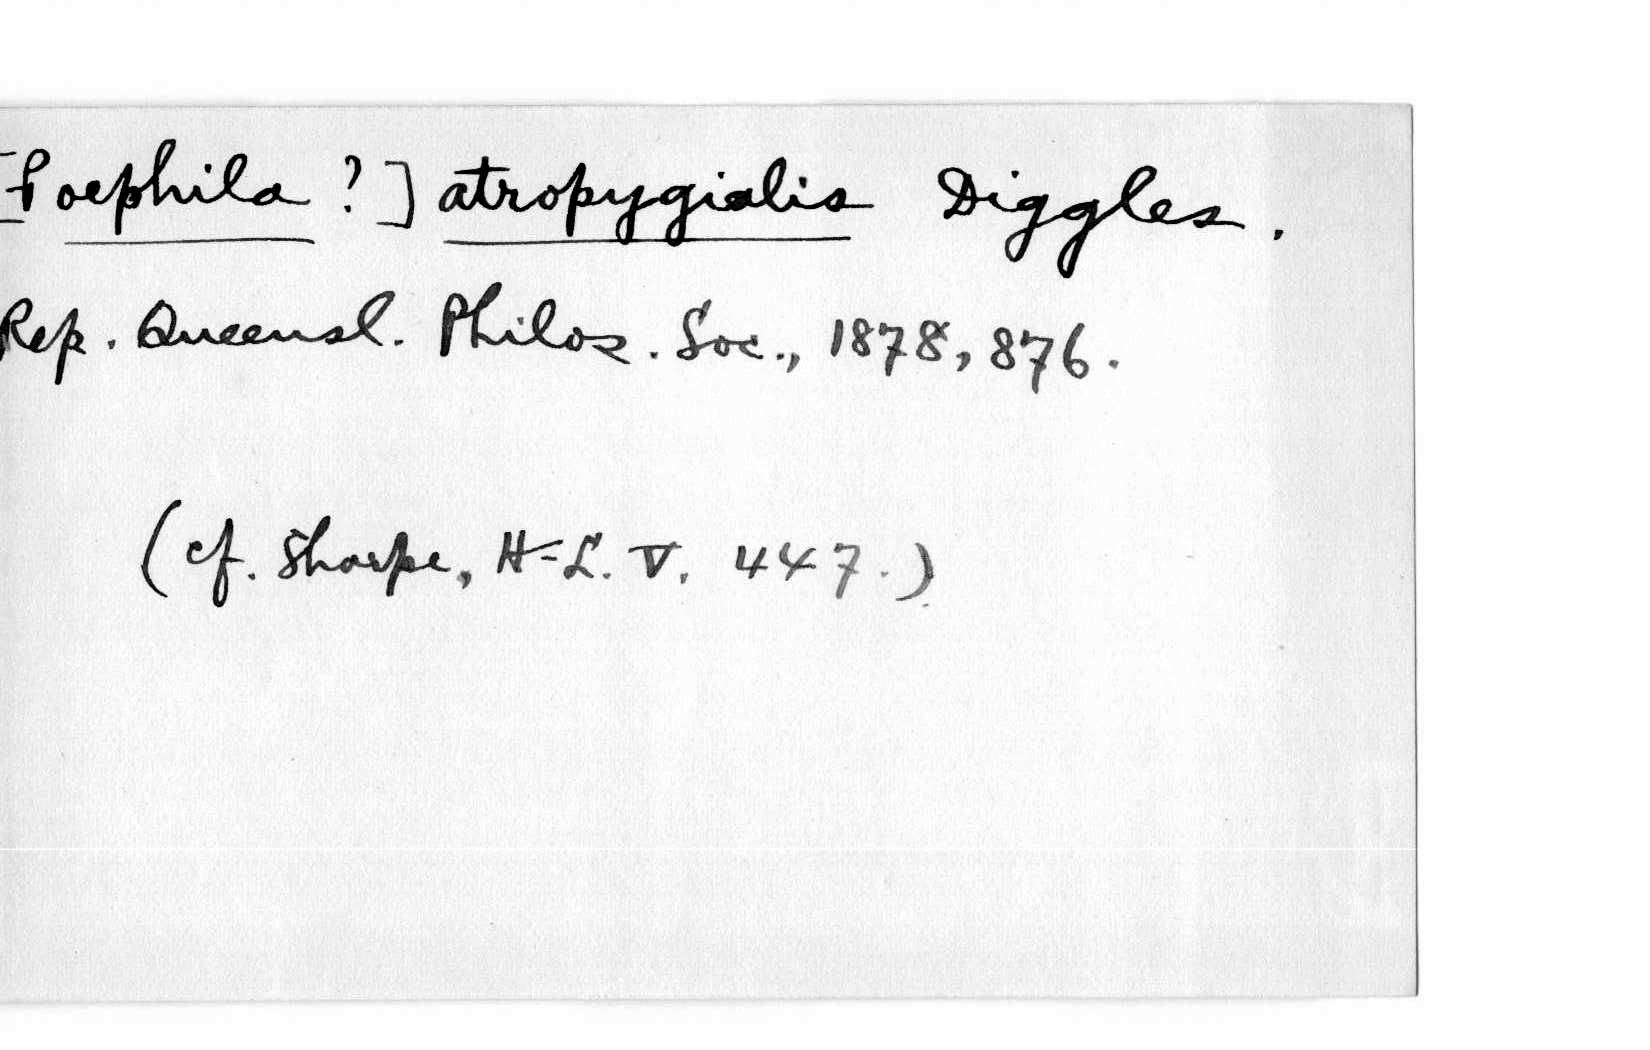 [Poephila ?] atropygialis Diggles.
Rep. Queensl. Philos. Soc., 1878, 876.
(cf. Sharpe, H-L. V. 447.)